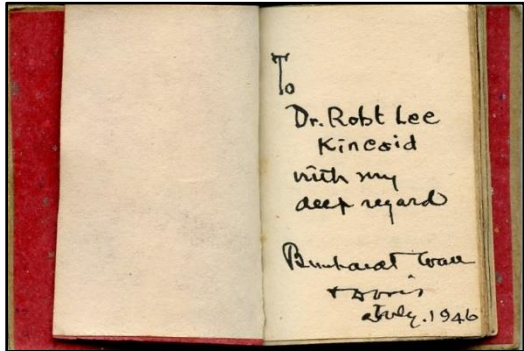 To
Dr. Robt Lee
Kincaid
with my
deep regard
Bernhardt Wall
+ Doris
July. 1946